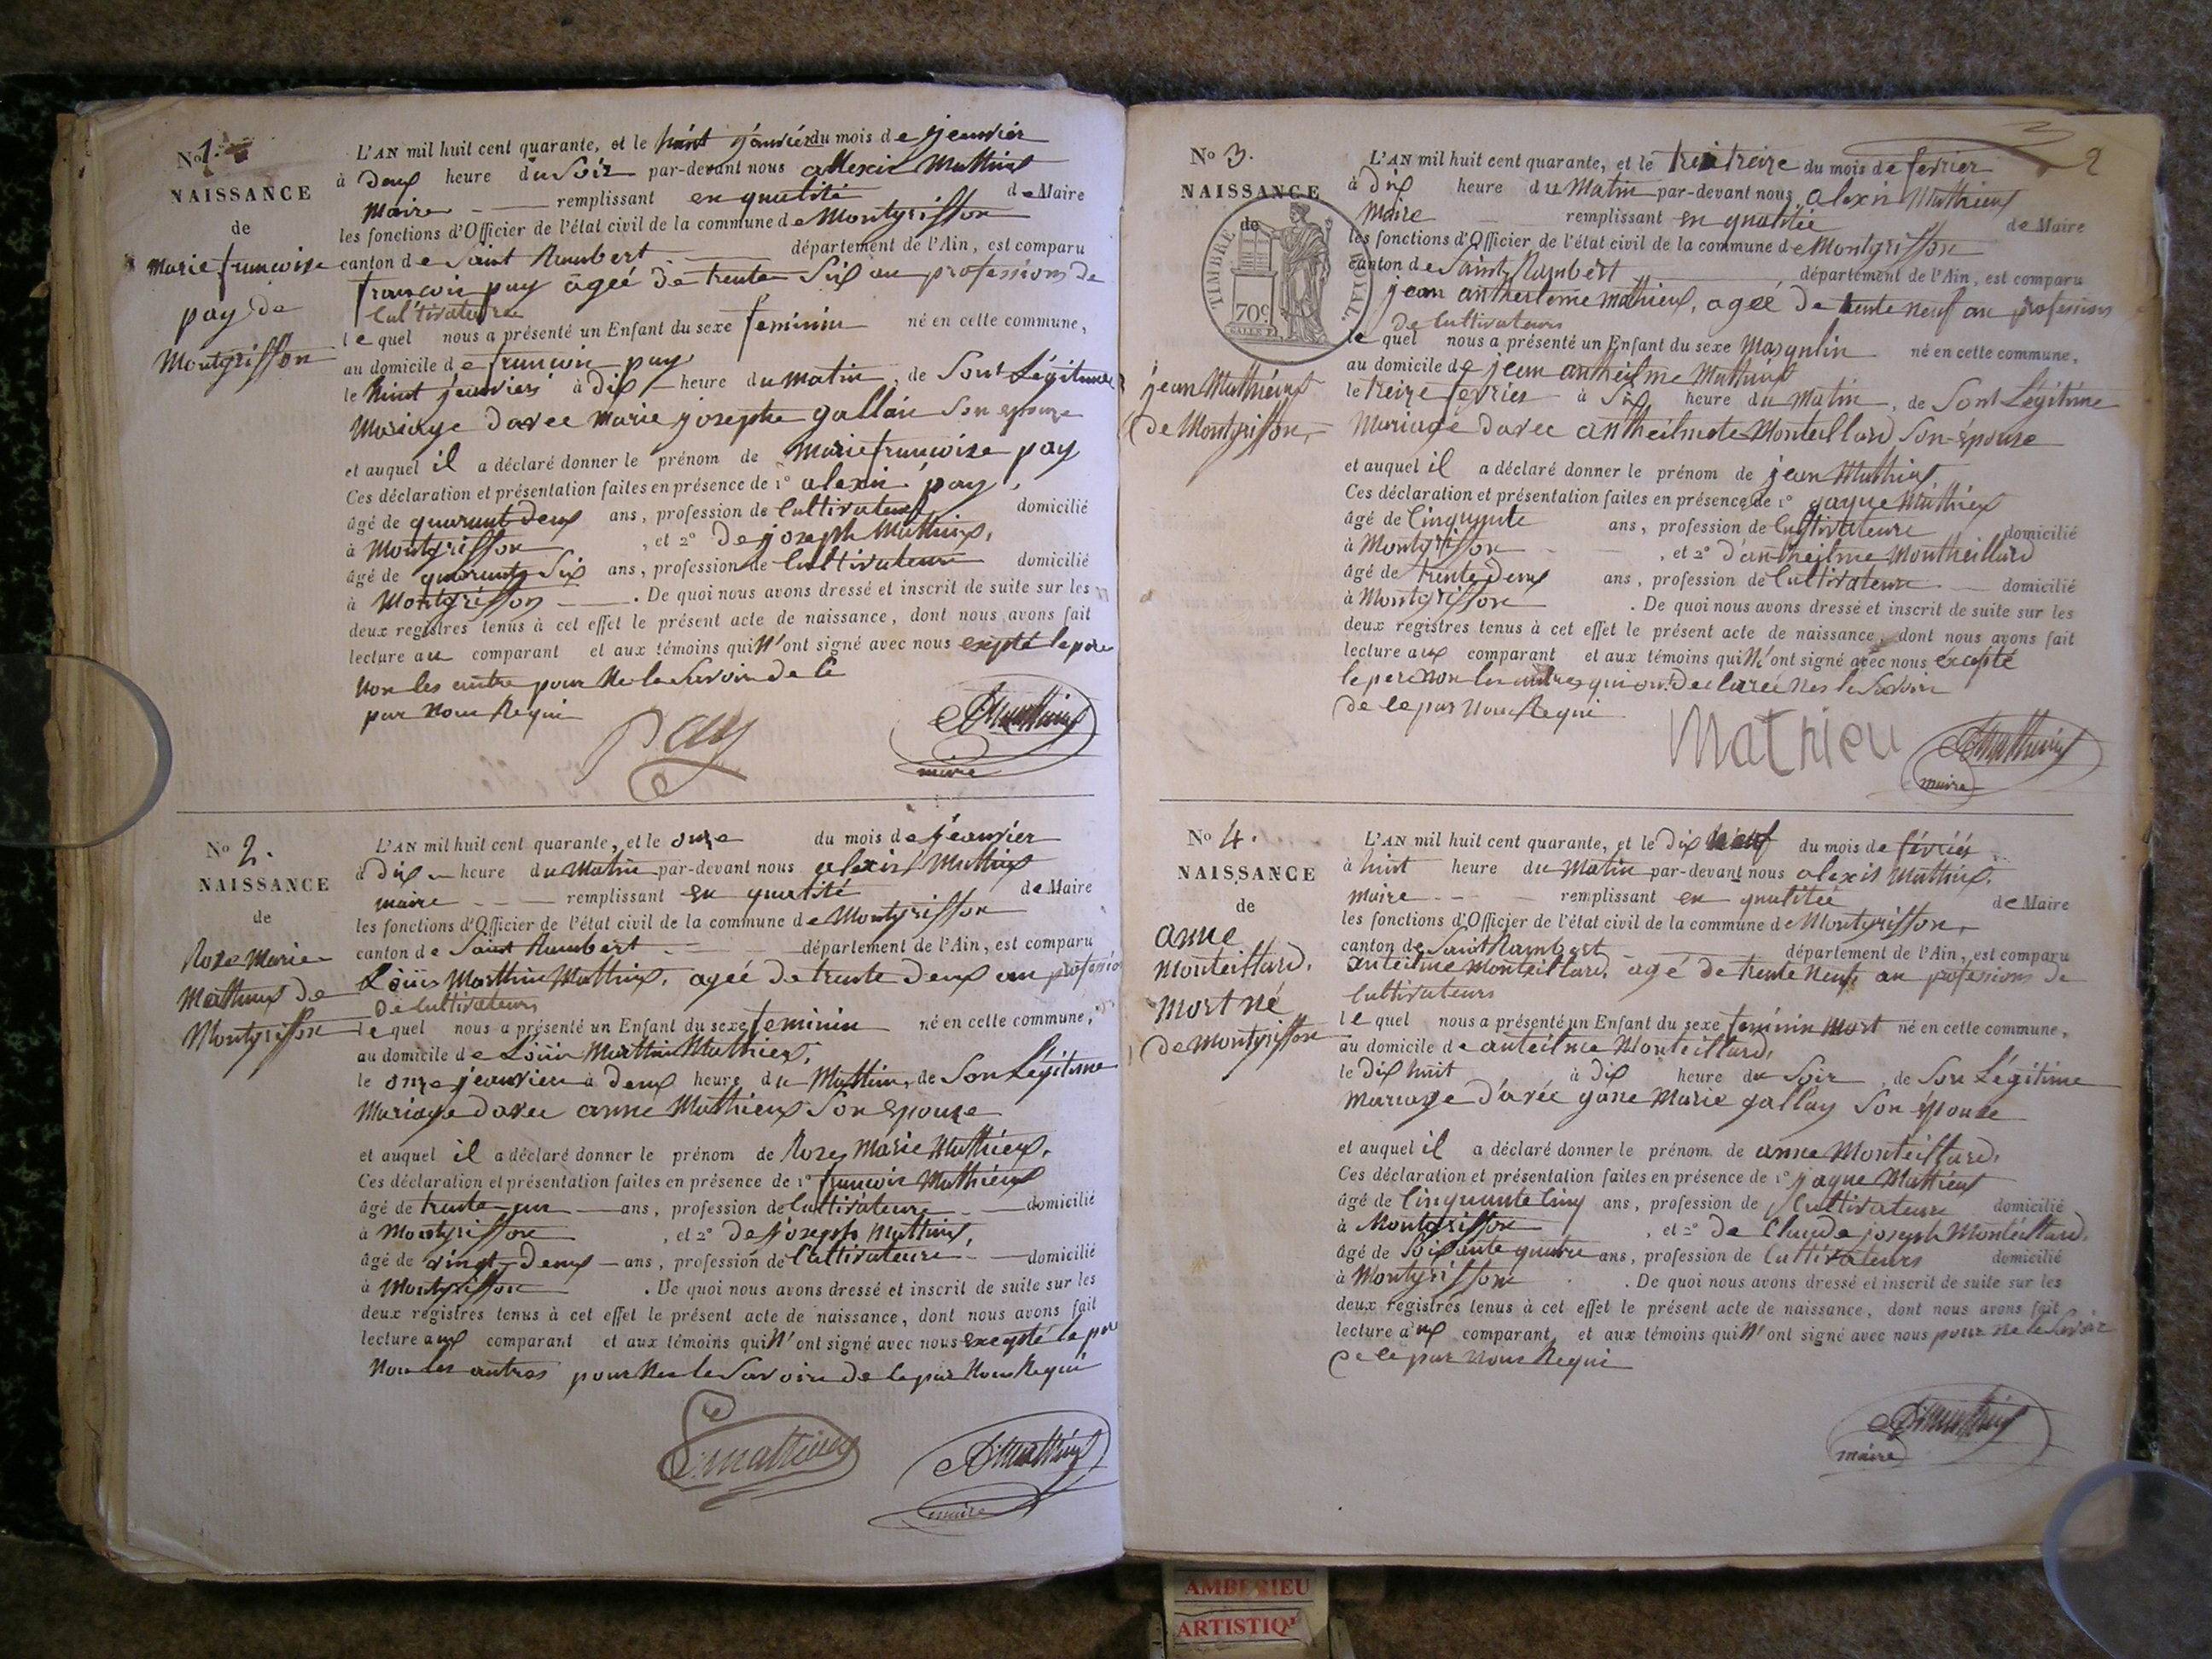 No 1.
NAISSANCE
de
Marie francoise
pay de
Montgriffon
L'AN mil huit cent quarante, et le huit janvier du mois de jeanvier
à deux heure du Soir par-devant nous allexis Mathieux
Maire remplissant en qualité de Maire
les fonctions d'Officier de l'état civil de la commune de Montgriffon
canton de Saint Rambert département de l'Ain, est comparu
francois pay âgée de trente Six an professions de
Cultivateure
lequel nous a présenté un Enfant du sexe feminin né en cette commune,
au domicile de francois pay
le huit jeanvier à dix heure du matin, de Sont Légitime
Mariage d'avec Marie josephe gallain Son epouze
et auquel il a déclaré donner le prénom de Marie francoise pay
Ces déclaration et présentation faites en présence de 1° alexis pay,
âgé de quarant deux ans, profession de Cultivateur domicilié
à Montgriffon, et 2° de joseph Mathieux,
âgé de quarante Six ans, profession de Cultivateure domicilié
à Montgriffon. De quoi nous avons dressé et inscrit de suite sur les
deux registres tenus à cet effet le présent acte de naissance, dont nous avons fait
lecture au comparant et aux témoins qui N'ont signé avec nous exepté le pere
Non les autre pour Ne le Savoir de ce
par Nous Requi
Pay
AMathieux
maire
No 2.
NAISSANCE
de
Roze Marie
Mathieux de
Montgriffon
L'AN mil huit cent quarante, et le onze du mois de jeanvier
à dix heure du Matin par-devant nous alexis Mathieux
maire remplissant en qualité de Maire
les fonctions d'Officier de l'état civil de la commune de Montgriffon
canton de Saint Rambert département de l'Ain, est comparu
Louis Marthin Mathieux, agée de trente deux an profession
de Cultivateurs
lequel nous a présenté un Enfant du sexe feminin né en cette commune,
au domicile de Louis Marthin Mathieux,
le onze jeanvier à deux heure du Matin, de Son Légitime
Mariage d'avec anne Mathieux Son Epouze
et auquel il a déclaré donner le prénom de Roze Marie Mathieux.
Ces déclaration et présentation faites en présence de 1° francois Mathieux
âgé de trente un ans, profession de Cultivateure domicilié
à Montgriffon, et 2° de joseph Mathieux,
âgé de vingt-deux ans, profession de Cultivateure domicilié
à Montgriffon. De quoi nous avons dressé et inscrit de suite sur les
deux registres tenus à cet effet le présent acte de naissance, dont nous avons fait
lecture aux comparant et aux témoins qui N'ont signé avec nous exepté le pere
Non les autres pour Ne le Savoire de ce par Nous Requi
Mathieux
AMathieux
maire
2
No 3.
NAISSANCE
de
TIMBRE
70c
jean Mathieux
de Montgriffon
L'AN mil huit cent quarante, et le treize du mois de fevrier
à dix heure du Matin par-devant nous alexis Mathieux
Maire remplissant en qualitée de Maire
les fonctions d'Officier de l'état civil de la commune de Montgriffon
canton de Saint Rambert département de l'Ain, est comparu
jean antheileme mathieux, agée de trente neuf an profession
de Cultivateurs
lequel nous a présenté un Enfant du sexe Masqulin né en cette commune,
au domicile de jean antheilme Mathieux
le treize fevrier à Six heure du Matin, de Sont Légitime
Mariage d'avec antheilmete Monteillard Son Epouse
et auquel il a déclaré donner le prénom de jean Mathieux
Ces déclaration et présentation faites en présence de 1° jaque Mathieux
âgé de Cinquante ans, profession de Cultivateure domicilié
à Montgriffon, et 2° d'antheilme Montheillard
âgé de trente deux ans, profession de Cultivateure domicilié
à Montgriffon. De quoi nous avons dressé et inscrit de suite sur les
deux registres tenus à cet effet le présent acte de naissance, dont nous avons fait
lecture aux comparant et aux témoins qui N'ont signé avec nous excepté
le pere Non les autres qui ont declarée Nes le Savoir
de ce par Nous Requi
Mathieu
AMathieux
maire
No 4.
NAISSANCE
de
anne
Monteillard.
Mort né
de Montgriffon
L'AN mil huit cent quarante, et le dix neuf du mois de févriér
à huit heure du Matin par-devant nous alexis Mathieux.
Maire remplissant en qualitée de Maire
les fonctions d'Officier de l'état civil de la commune de Montgriffon,
canton de Saint Rambert département de l'Ain, est comparu
anteilme Monteillard, agé de trente neuf, an professions de
Cultivateurs
lequel nous a présenté un Enfant du sexe feminin Mort né en cette commune,
au domicile de anteilme Monteillard,
le dix huit à dix heure du Soir, de Son Légitime
Mariage d'avéc gane Marie gallay Son épouze
et auquel il a déclaré donner le prénom de anne Monteillard,
Ces déclaration et présentation faites en présence de 1° jaque Mathieux
âgé de Cinquante Cinq ans, profession de Cultivateure domicilié
à Montgriffon, et 2° de Claude joseph Montéillard,
âgé de Soixante quatre ans, profession de Cultivateurs domicilié
à Montgriffon. De quoi nous avons dressé et inscrit de suite sur les
deux registres tenus à cet effet le présent acte de naissance, dont nous avons fait
lecture aux comparant et aux témoins qui N'ont signé avec nous pour ne le Savoir
de ce par Nous Requi
AMathieux
maire
AMBERIEU
ARTISTIQ